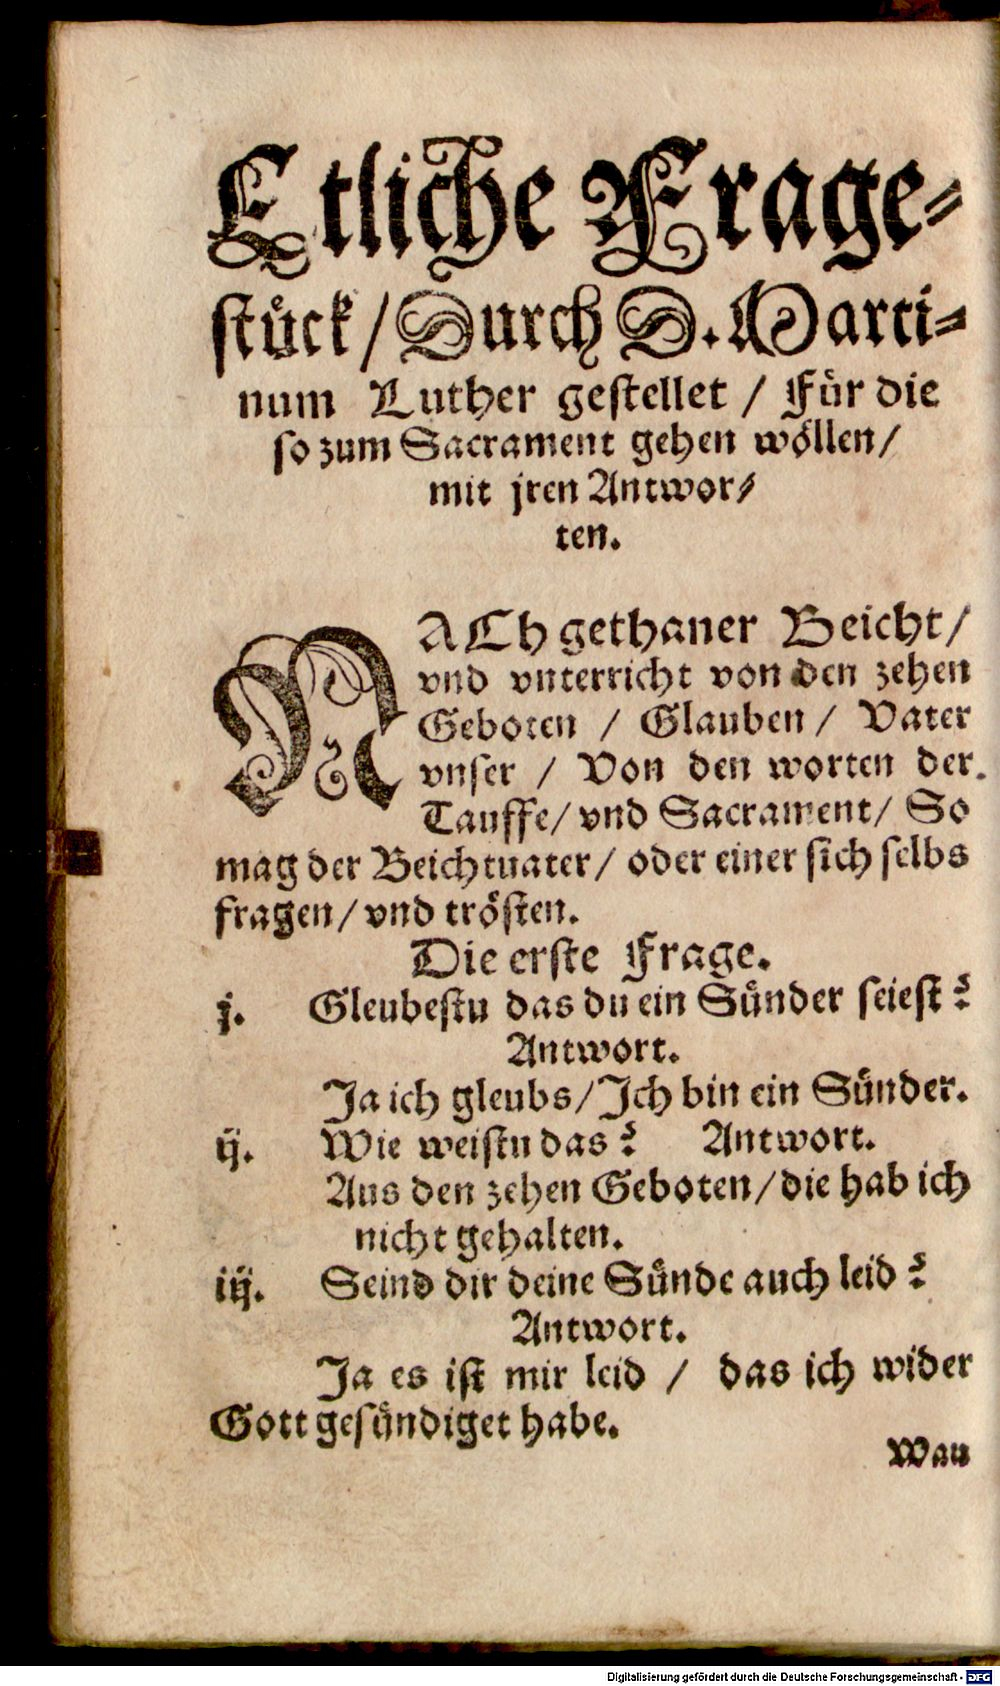 Etliche Frage-
stück / Durch D. Marti-
num Luther gestellet / Für die
so zum Sacrament gehen wöllen /
mit jren Antwor-
ten.
NACh gethaner Beicht /
vnd vnterricht von den zehen
Geboten / Glauben / Vater
vnser / Von den worten der
Tauffe / vnd Sacrament / So
mag der Beichtuater / oder einer sich selbs
fragen / vnd trösten.
Die erste Frage.
j. Gleubestu das du ein Sünder seiest?
Antwort.
Ja ich gleubs / Ich bin ein Sünder.
ij. Wie weistu das? Antwort.
Aus den zehen Geboten / die hab ich
nicht gehalten.
iij. Seind dir deine Sünde auch leid?
Antwort.
Ja es ist mir leid / das ich wider
Gott gesündiget habe.
Wau
Digitalisierung gefördert durch die Deutsche Forschungsgemeinschaft - DFG